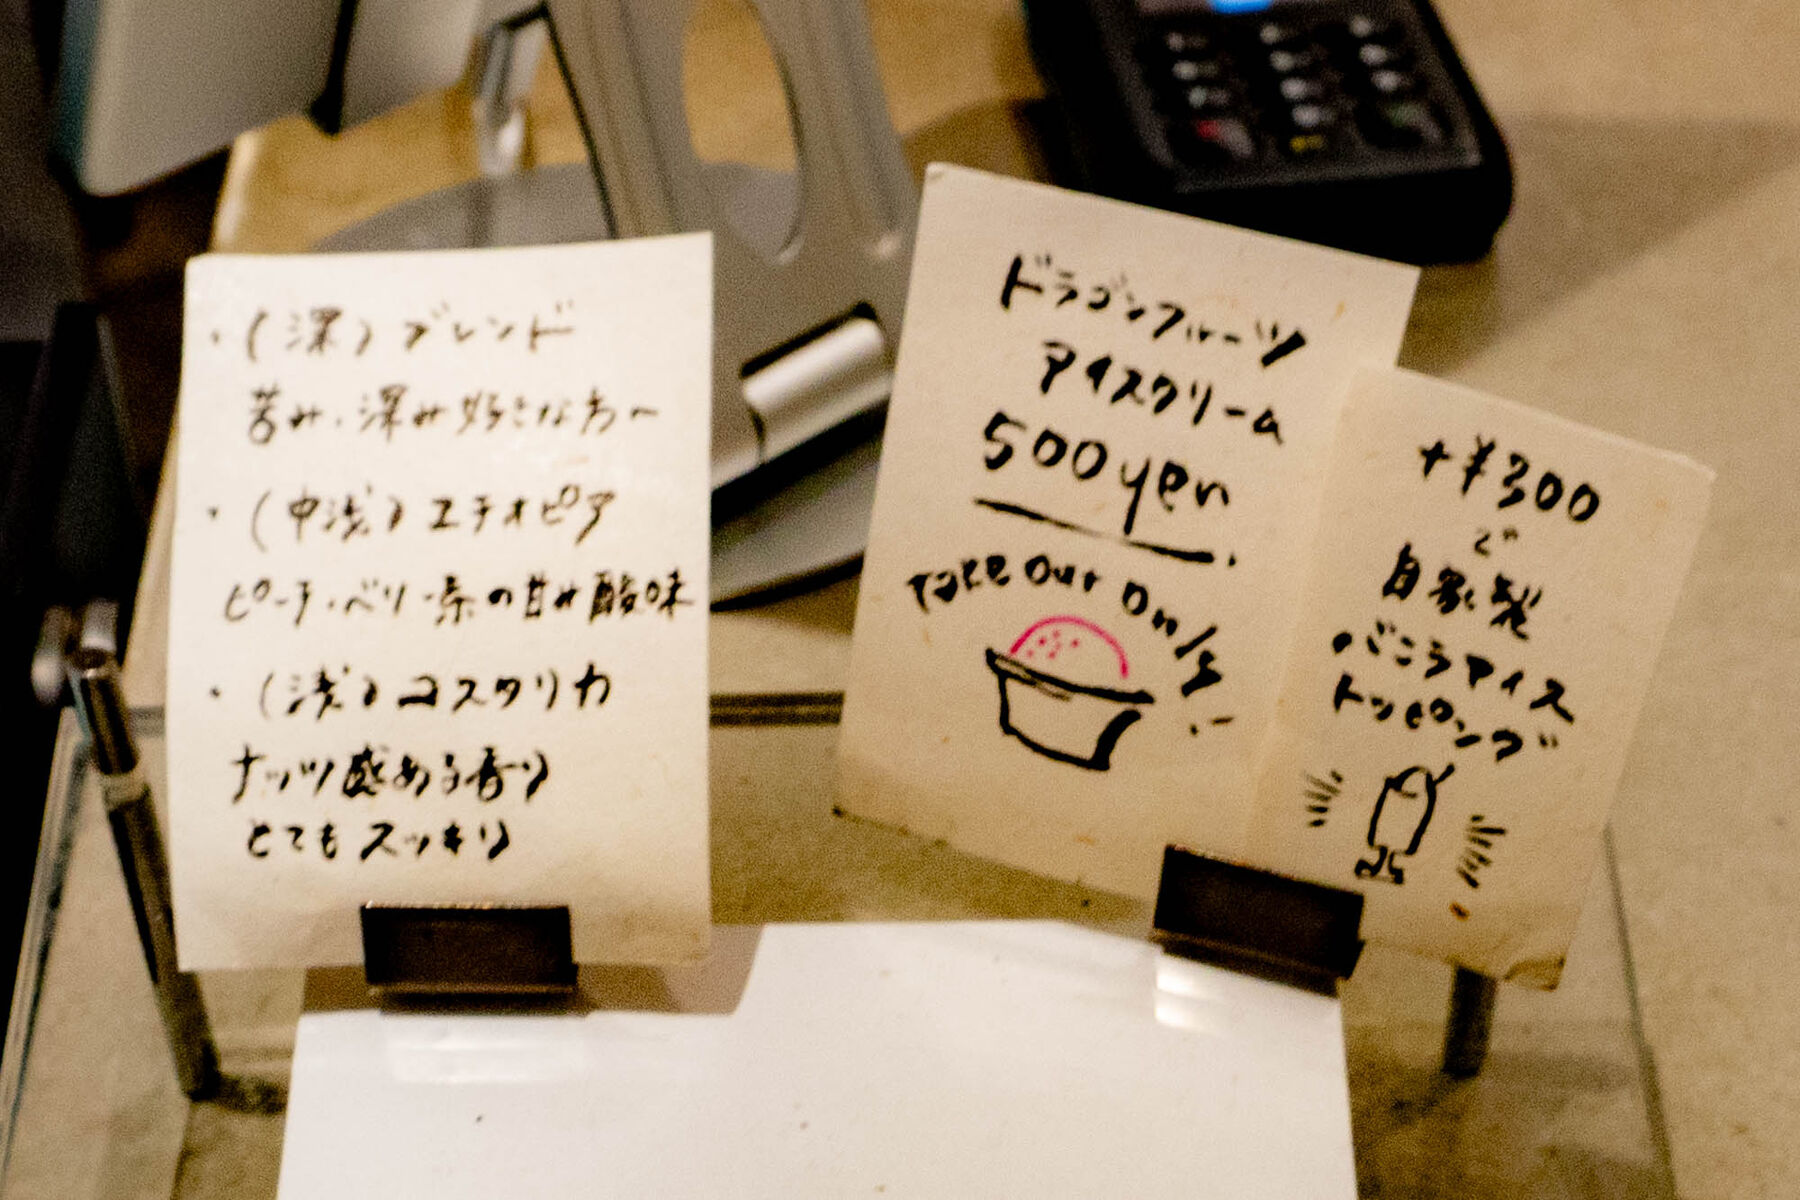 ・(深)ブレンド
苦み・深み好きな方へ
・(中浅)エチオピア
ピーチ・ベリー系の甘み酸味
・(浅)コスタリカ
ナッツ感ある香り
とてもスッキリ
ドラゴンフルーツ
アイスクリーム
500yen
Take out only!
+¥300
で
自家製
バニラアイス
トッピング